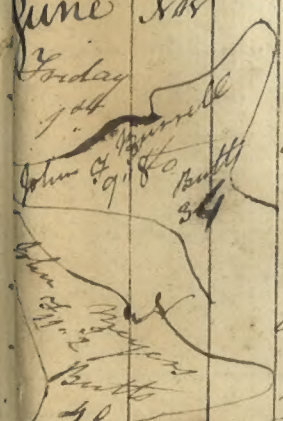 June Nov
Friday
1st
John F. Burrell
9. 8 to
Butts
34
John F. Meyers
11. 2
Butts
40